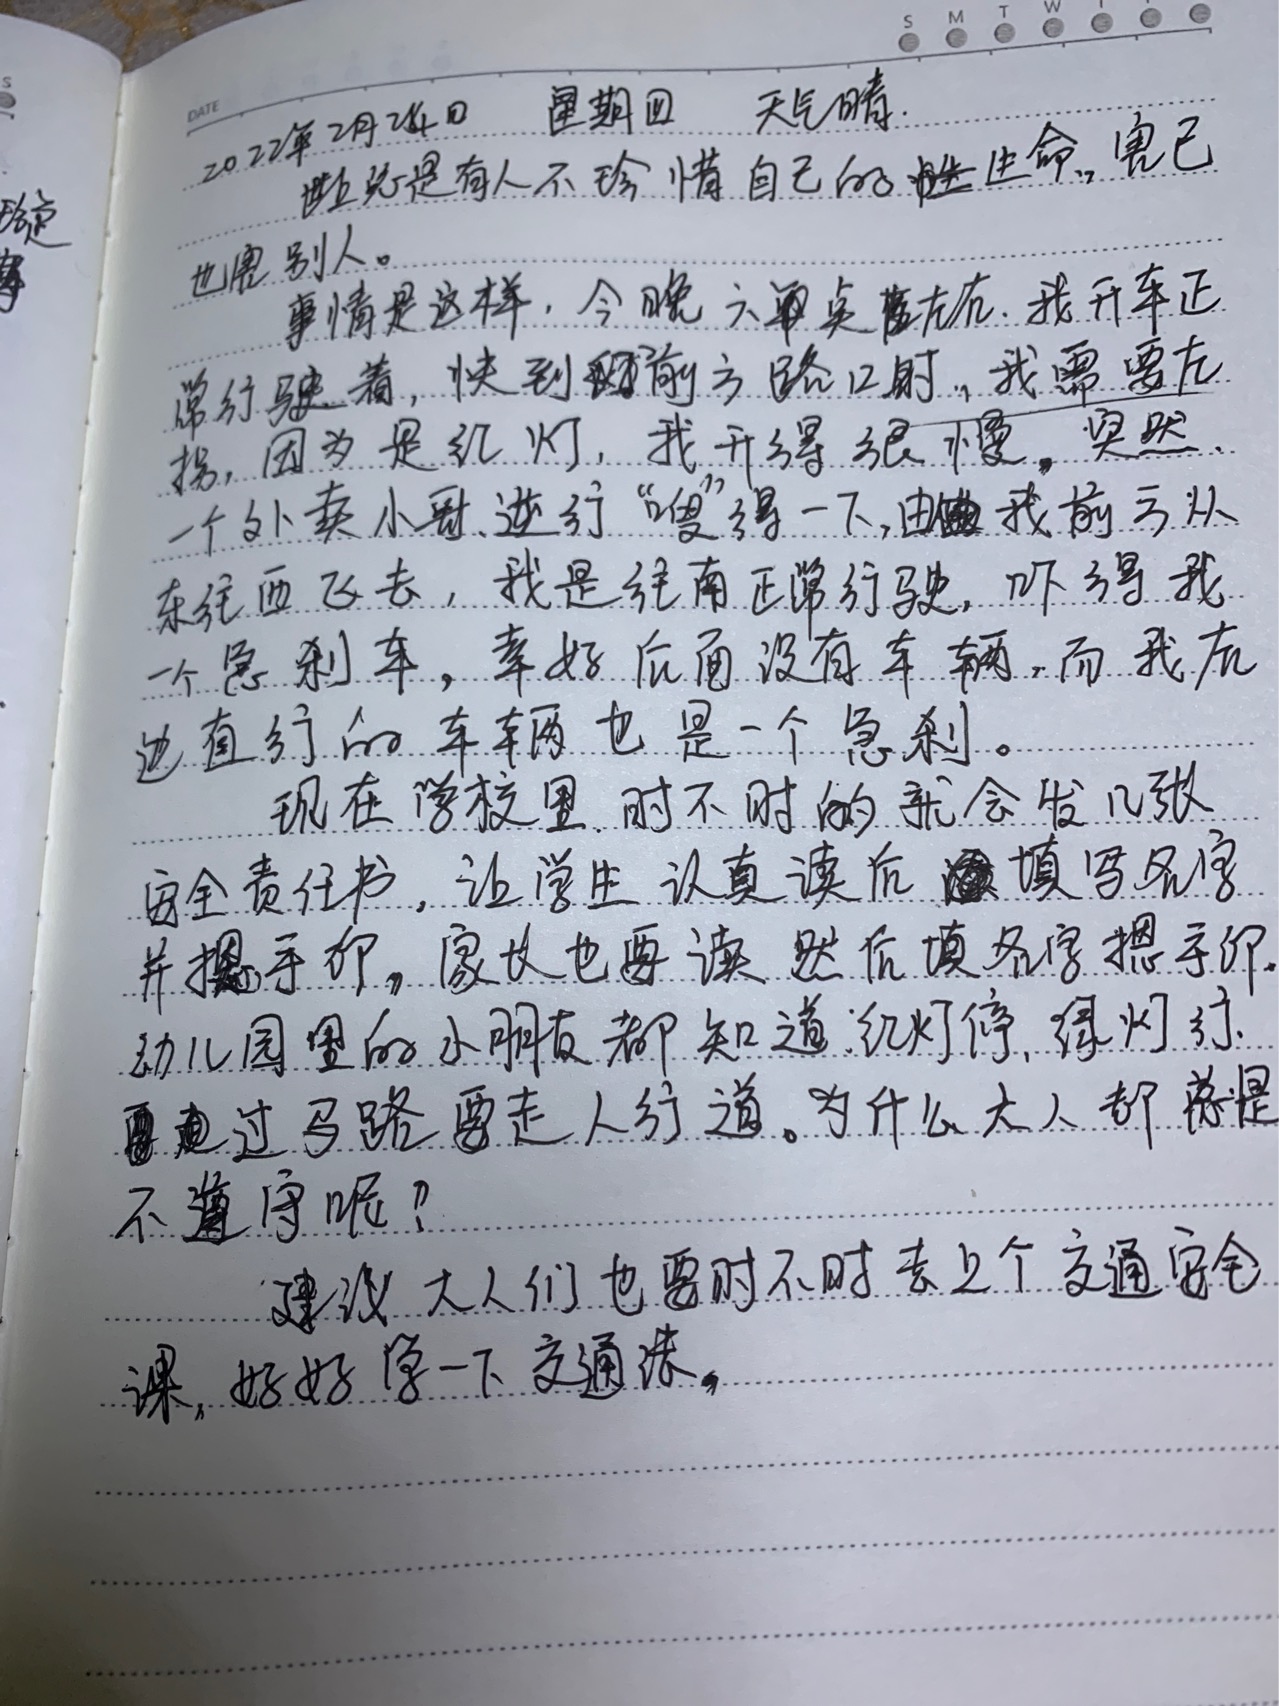 S M T W T
DATE
2022年2月24日 星期四 天气晴.
总是有人不珍惜自己的生命,害己
也害别人。
事情是这样,今晚六点左右.我开车正
常行驶着,快到前方路口时,我需要左
拐,因为是红灯,我开得很慢。突然.
一个外卖小哥逆行“嗖”得一下,由我前方从
东往西飞去,我是往南正常行驶,吓得我
一个急刹车,幸好后面没有车辆,而我右
边直行的车辆也是一个急刹。
现在学校里时不时的就会发几张
安全责任书,让学生认真读后填写名字
并摁手印,家长也要读然后填名字摁手印.
幼儿园里的小朋友都知道:红灯停,绿灯行.
过马路要走人行道。为什么大人都总是
不遵守呢?
建议大人们也要时不时去上个交通安全
课,好好学一下交通法。